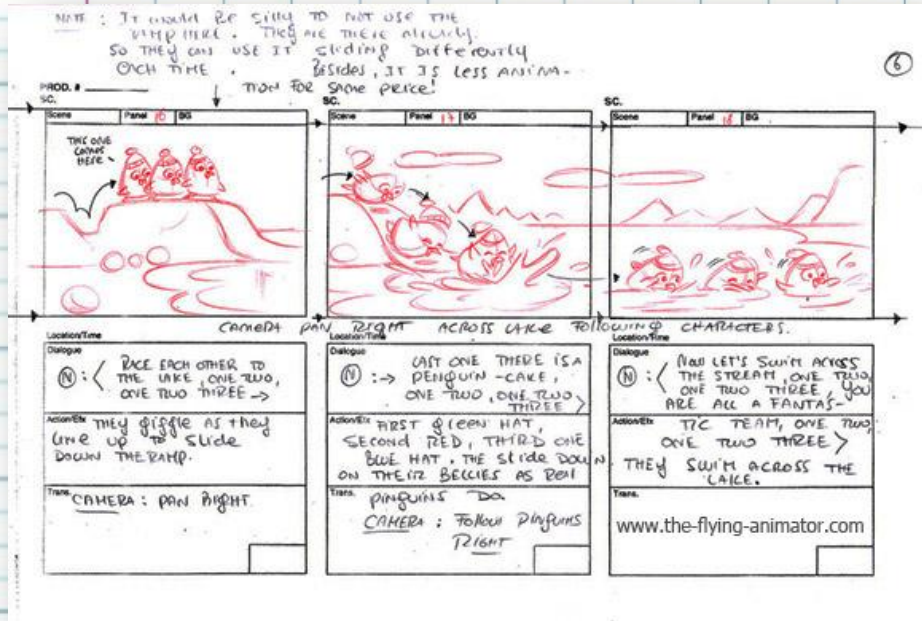 NOTE : IT WOULD BE SILLY TO NOT USE THE
RAMP HERE . THEY ARE THERE ALREADY.
SO THEY CAN USE IT SLIDING DIFFERENTLY
EACH TIME . BESIDES, IT IS LESS ANIMA-
TION FOR SAME PRICE!
6
PROD. #
SC.
SC.
SC.
Scene Panel 16 BG
Scene Panel 17 BG
Scene Panel 18 BG
THIS ONE
COMES
HERE
CAMERA PAN RIGHT ACROSS LAKE FOLLOWING CHARACTERS.
Location/Time
Dialogue
N : < RACE EACH OTHER TO
THE LAKE, ONE TWO,
ONE TWO THREE →
Action/Efx THEY GIGGLE AS THEY
LINE UP TO SLIDE
DOWN THE RAMP.
Trans. CAMERA : PAN RIGHT
Location/Time
Dialogue
N : → LAST ONE THERE IS A
PENGUIN - CAKE,
ONE TWO, ONE TWO
THREE >
Action/Efx FIRST GREEN HAT,
SECOND RED, THIRD ONE
BLUE HAT. THE SLIDE DOWN
ON THEIR BELLIES AS REAL
Trans. PINGUINS DO.
CAMERA : FOLLOW PINGUINS
RIGHT
Location/Time
Dialogue
N : < NOW LET'S SWIM ACROSS
THE STREAM, ONE TWO,
ONE TWO THREE, YOU
ARE ALL A FANTAS-
Action/Efx TIC TEAM, ONE TWO,
ONE TWO THREE >
THEY SWIM ACROSS THE
LAKE.
Trans.
www.the-flying-animator.com